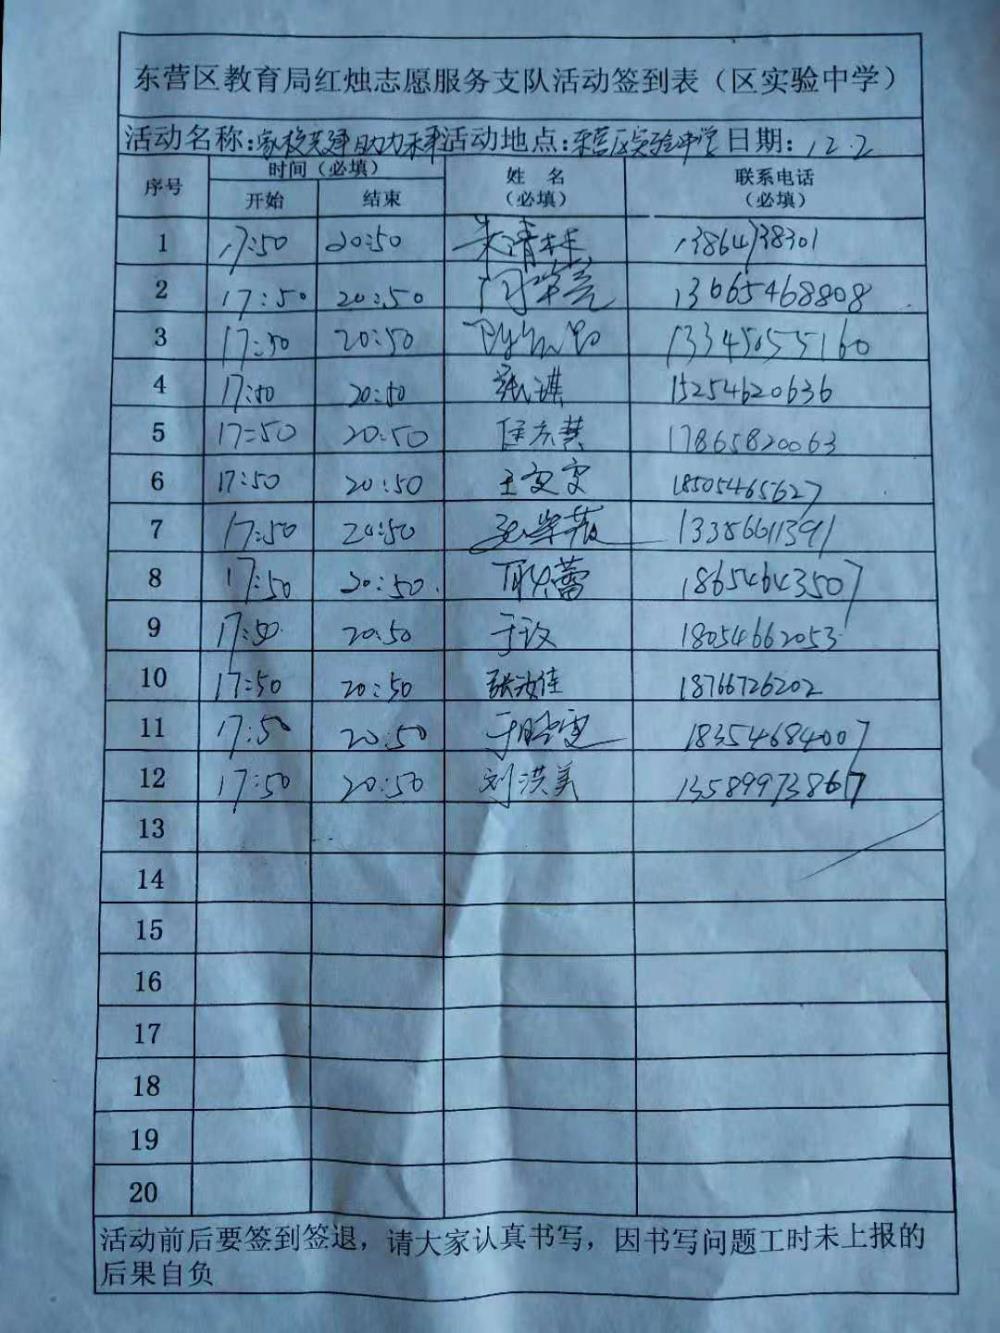 东营区教育局红烛志愿服务支队活动签到表（区实验中学）
活动名称:家校共建 助力未来 活动地点:东营区实验中学 日期:12.2
序号 时间（必填） 姓 名（必填） 联系电话（必填）
开始 结束
1 17:50 20:50 13864738301
2 17:50 20:50 13665468808
3 17:50 20:50 13345055160
4 17:50 20:50 张琪 15254620636
5 17:50 20:50 17865820063
6 17:50 20:50 王文文 18505465627
7 17:50 20:50 13356611391
8 17:50 20:50 耿蕾 18654643507
9 17:50 20:50 于玫 18054662053
10 17:50 20:50 张汝佳 18766726202
11 17:50 20:50 于晓雯 18354684007
12 17:50 20:50 刘洪美 13589973867
13
14
15
16
17
18
19
20
活动前后要签到签退，请大家认真书写，因书写问题工时未上报的
后果自负